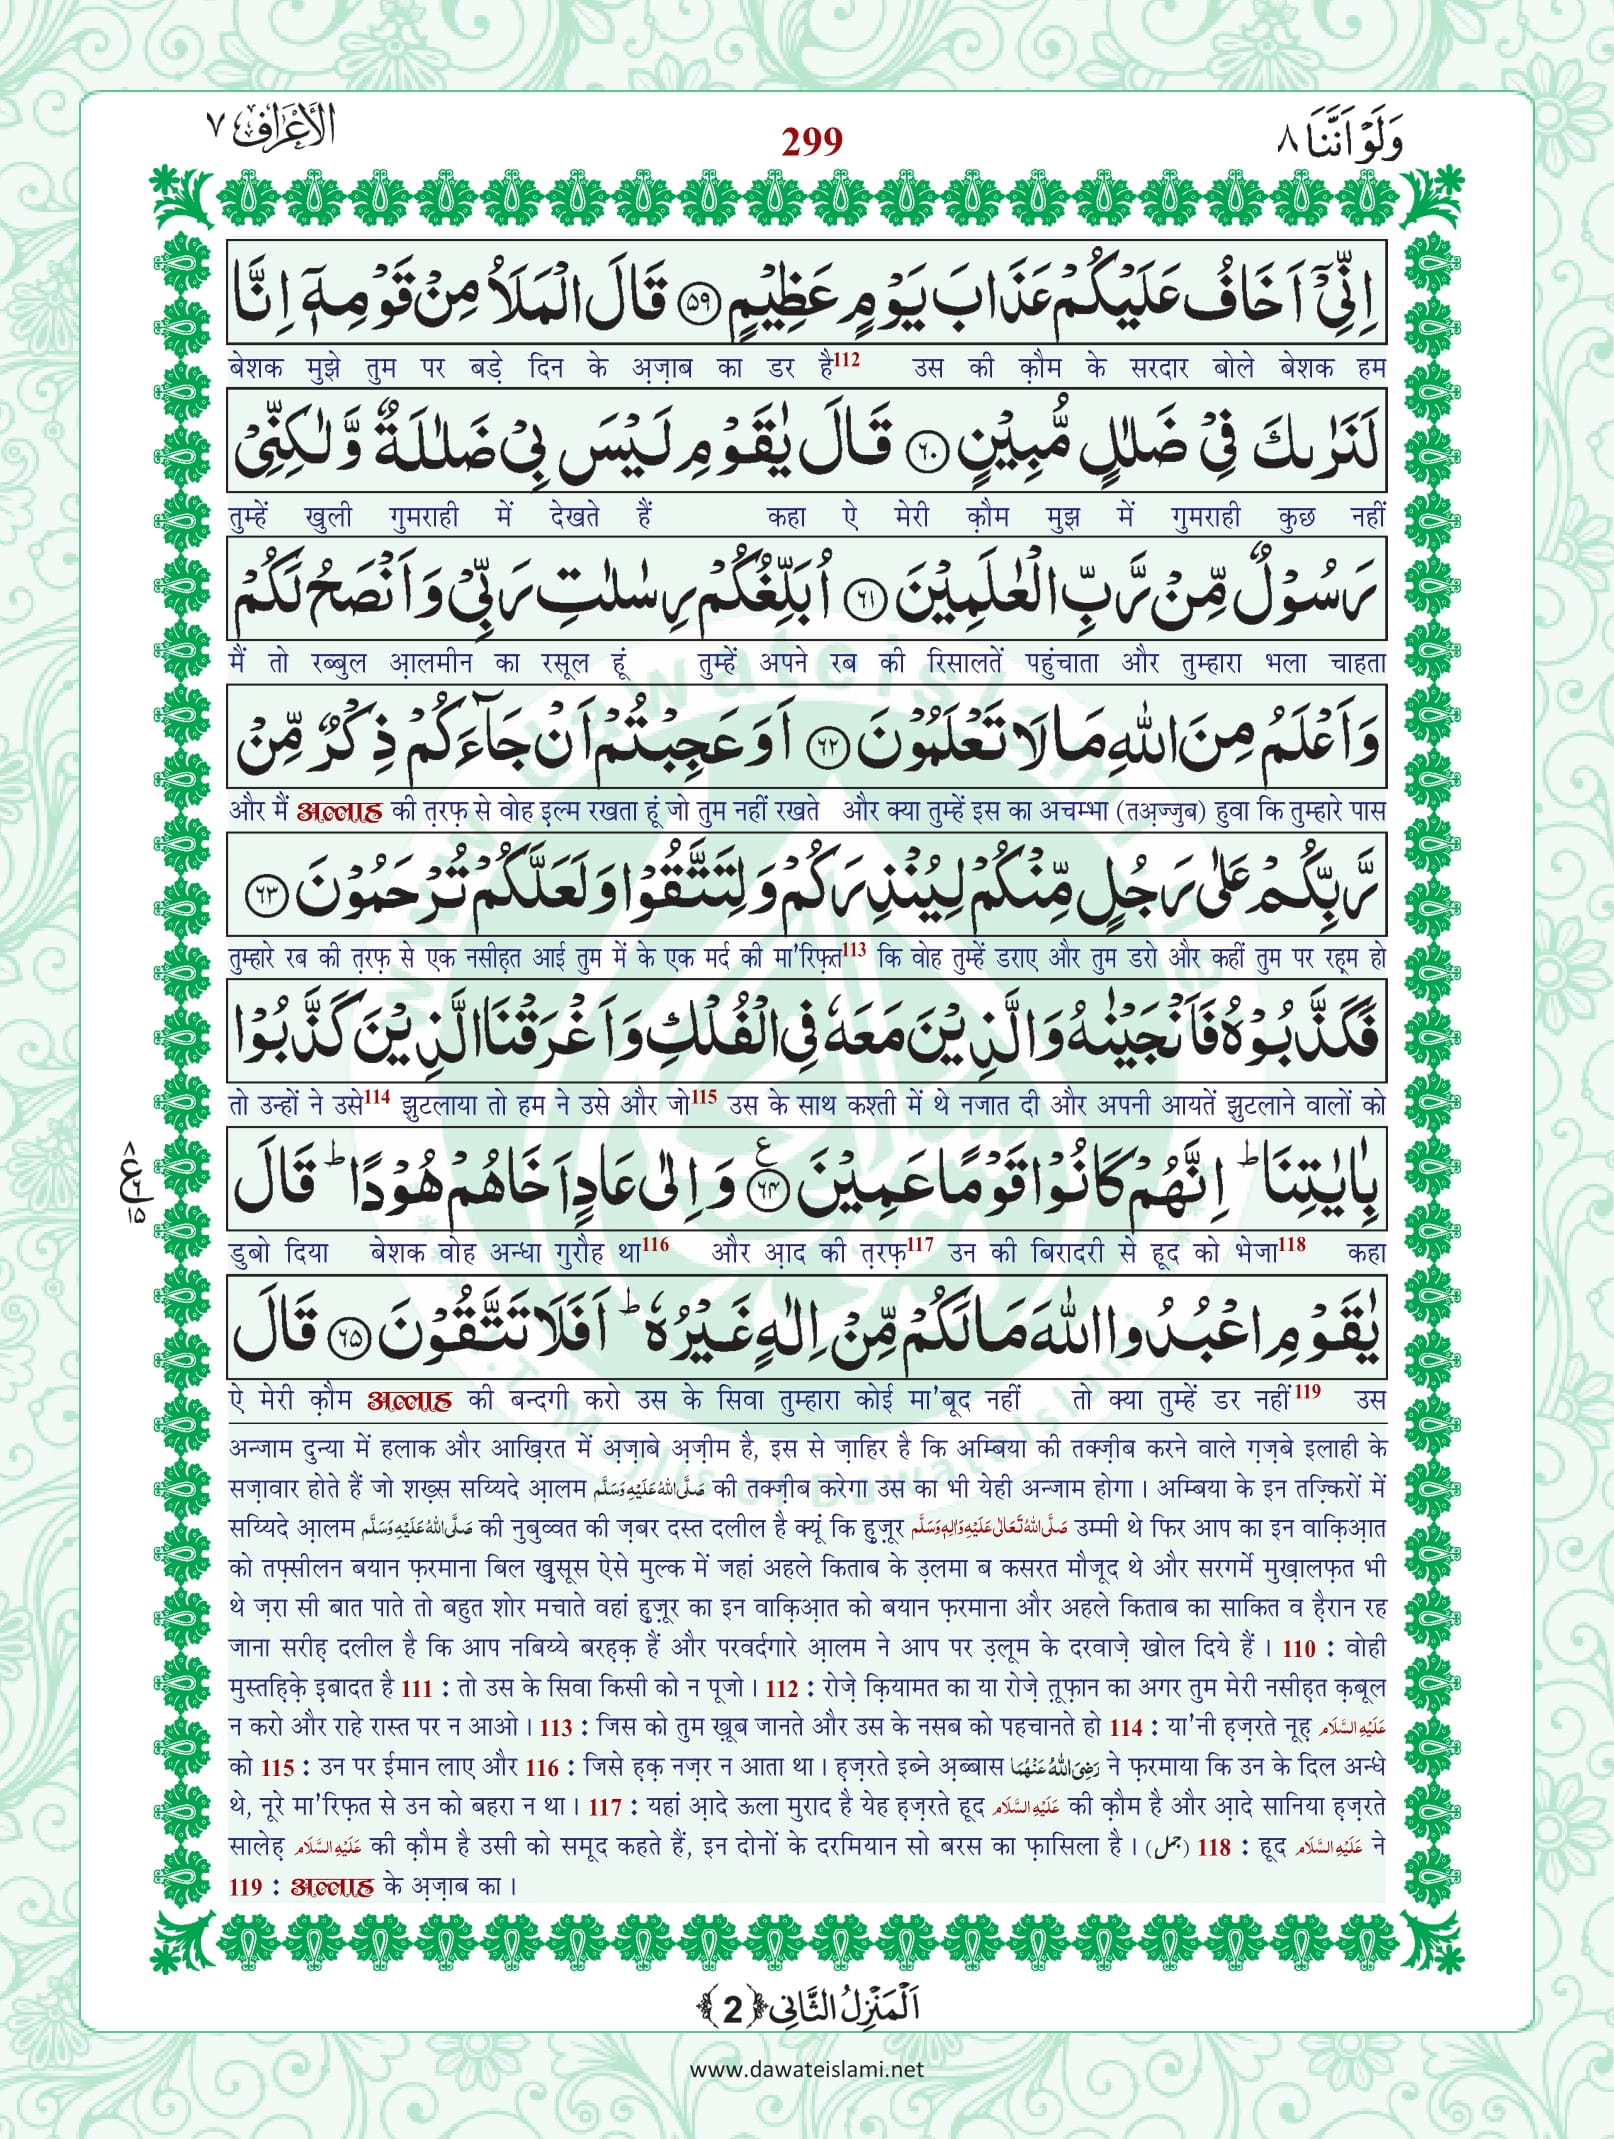 وَلَوْ اَنَّنَا ٨
299
الْاَعْرَاف ٧
اِنِّیْۤ اَخَافُ عَلَیْكُمْ عَذَابَ یَوْمٍ عَظِیْمٍ ﴿۵۹﴾ قَالَ الْمَلَاُ مِنْ قَوْمِهٖۤ اِنَّا
बेशक मुझे तुम पर बड़े दिन के अ़ज़ाब का डर है112 उस की क़ौम के सरदार बोले बेशक हम
لَنَرٰىكَ فِیْ ضَلٰلٍ مُّبِیْنٍ ﴿۶۰﴾ قَالَ یٰقَوْمِ لَیْسَ بِیْ ضَلٰلَةٌ وَّلٰكِنِّیْ
तुम्हें खुली गुमराही में देखते हैं कहा ऐ मेरी क़ौम मुझ में गुमराही कुछ नहीं
رَسُوْلٌ مِّنْ رَّبِّ الْعٰلَمِیْنَ ﴿۶۱﴾ اُبَلِّغُكُمْ رِسٰلٰتِ رَبِّیْ وَاَنْصَحُ لَكُمْ
मैं तो रब्बुल आ़लमीन का रसूल हूं तुम्हें अपने रब की रिसालतें पहुंचाता और तुम्हारा भला चाहता
وَاَعْلَمُ مِنَ اللّٰهِ مَا لَا تَعْلَمُوْنَ ﴿۶۲﴾ اَوَعَجِبْتُمْ اَنْ جَآءَكُمْ ذِكْرٌ مِّنْ
और मैं अल्लाह की त़रफ़ से वोह इ़ल्म रखता हूं जो तुम नहीं रखते और क्या तुम्हें इस का अचम्भा (तअ़ज्जुब) हुवा कि तुम्हारे पास
رَّبِّكُمْ عَلٰی رَجُلٍ مِّنْكُمْ لِیُنْذِرَكُمْ وَلِتَتَّقُوْا وَلَعَلَّكُمْ تُرْحَمُوْنَ ﴿۶۳﴾
तुम्हारे रब की त़रफ़ से एक नसीह़त आई तुम में के एक मर्द की मा'रिफ़त113 कि वोह तुम्हें डराए और तुम डरो और कहीं तुम पर रह़म हो
فَكَذَّبُوْهُ فَاَنْجَیْنٰهُ وَالَّذِیْنَ مَعَهٗ فِی الْفُلْكِ وَاَغْرَقْنَا الَّذِیْنَ كَذَّبُوْا
तो उन्हों ने उसे114 झुटलाया तो हम ने उसे और जो115 उस के साथ कश्ती में थे नजात दी और अपनी आयतें झुटलाने वालों को
بِاٰیٰتِنَا ؕ اِنَّهُمْ كَانُوْا قَوْمًا عَمِیْنَ ﴿۶۴﴾ ع وَاِلٰی عَادٍ اَخَاهُمْ هُوْدًا ؕ قَالَ
٨ ع ٦ ١٥
डुबो दिया बेशक वोह अन्धा गुरौह था116 और आ़द की त़रफ़117 उन की बिरादरी से हूद को भेजा118 कहा
یٰقَوْمِ اعْبُدُوا اللّٰهَ مَا لَكُمْ مِّنْ اِلٰهٍ غَیْرُهٗ ؕ اَفَلَا تَتَّقُوْنَ ﴿۶۵﴾ قَالَ
ऐ मेरी क़ौम अल्लाह की बन्दगी करो उस के सिवा तुम्हारा कोई मा'बूद नहीं तो क्या तुम्हें डर नहीं119 उस
अन्जाम दुन्या में हलाक और आख़िरत में अ़ज़ाबे अ़ज़ीम है, इस से ज़ाहिर है कि अम्बिया की तक्ज़ीब करने वाले ग़ज़बे इलाही के
सज़ावार होते हैं जो शख़्स सय्यिदे आ़लम صَلَّى اللّٰهُ عَلَيْهِ وَسَلَّم की तक्ज़ीब करेगा उस का भी येही अन्जाम होगा । अम्बिया के इन तज़्किरों में
सय्यिदे आ़लम صَلَّى اللّٰهُ عَلَيْهِ وَسَلَّم की नुबुव्वत की ज़बर दस्त दलील है क्यूं कि हुज़ूर صَلَّى اللّٰهُ تَعَالٰى عَلَيْهِ وَاٰلِهٖ وَسَلَّم उम्मी थे फिर आप का इन वाक़िआ़त
को तफ़्सीलन बयान फ़रमाना बिल ख़ुसूस ऐसे मुल्क में जहां अहले किताब के उ़लमा ब कसरत मौजूद थे और सरगर्मे मुख़ालफ़त भी
थे ज़रा सी बात पाते तो बहुत शोर मचाते वहां हुज़ूर का इन वाक़िआ़त को बयान फ़रमाना और अहले किताब का साकित व ह़ैरान रह
जाना सरीह़ दलील है कि आप नबिय्ये बरह़क़ हैं और परवर्दगारे आ़लम ने आप पर उ़लूम के दरवाज़े खोल दिये हैं । 110 : वोही
मुस्तह़िक़े इ़बादत है 111 : तो उस के सिवा किसी को न पूजो । 112 : रोज़े क़ियामत का या रोज़े त़ूफ़ान का अगर तुम मेरी नसीह़त क़बूल
न करो और राहे रास्त पर न आओ । 113 : जिस को तुम ख़ूब जानते और उस के नसब को पहचानते हो 114 : या'नी ह़ज़रते नूह़ عَلَيْهِ السَّلَام
को 115 : उन पर ईमान लाए और 116 : जिसे ह़क़ नज़र न आता था । ह़ज़रते इब्ने अ़ब्बास رَضِيَ اللّٰهُ عَنْهُمَا ने फ़रमाया कि उन के दिल अन्धे
थे, नूरे मा'रिफ़त से उन को बहरा न था । 117 : यहां आ़दे ऊला मुराद है येह ह़ज़रते हूद عَلَيْهِ السَّلَام की क़ौम है और आ़दे सानिया ह़ज़रते
सालेह़ عَلَيْهِ السَّلَام की क़ौम है उसी को समूद कहते हैं, इन दोनों के दरमियान सो बरस का फ़ासिला है । (جمل) 118 : हूद عَلَيْهِ السَّلَام ने
119 : अल्लाह के अ़ज़ाब का ।
اَلْمَنْزِلُ الثَّانِی ﴿2﴾
www.dawateislami.net